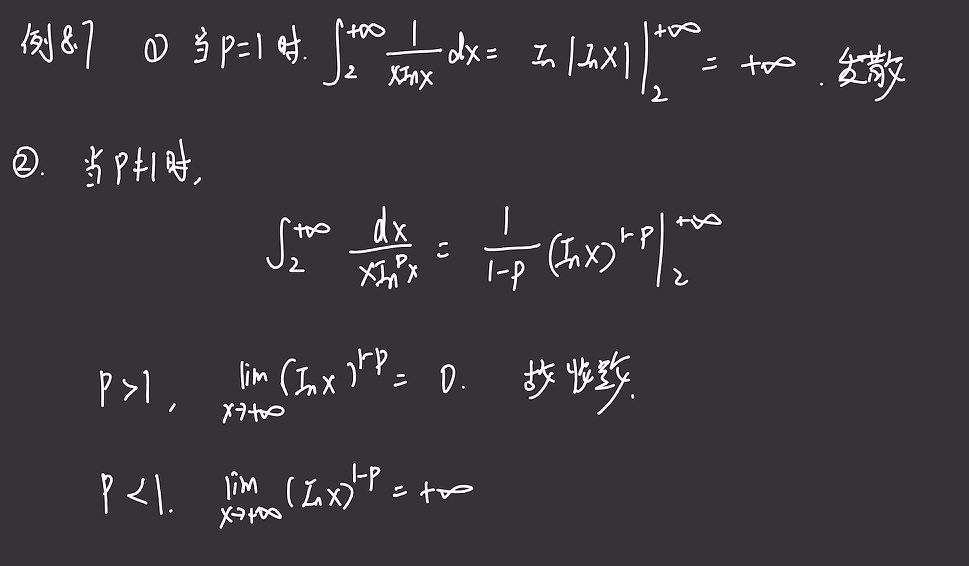 例8.7 ① 当P=1时. ∫₂^{+∞} 1/(xlnx) dx = ln|lnx| |₂^{+∞} = +∞. 发散
②. 当P≠1时,
∫₂^{+∞} dx/(xlnᵖx) = 1/(1-P) (lnx)^{1-P} |₂^{+∞}
P>1, lim_{x→+∞} (lnx)^{1-P} = 0. 故收敛.
P<1. lim_{x→+∞} (lnx)^{1-P} = +∞